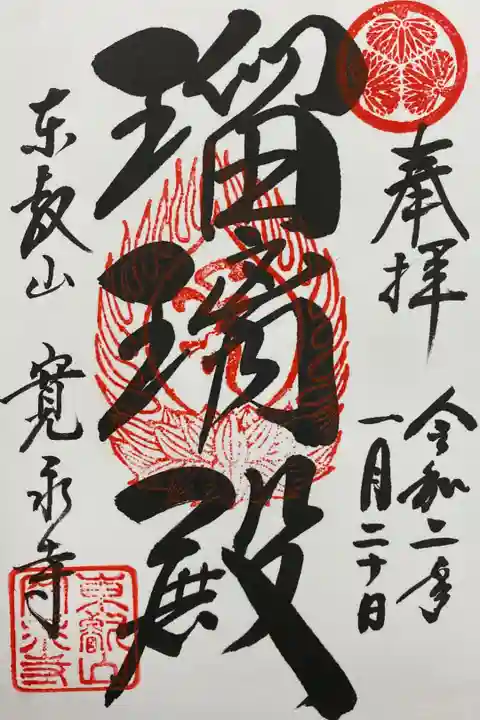 奉拝
令和二年
一月二十日
瑠璃殿
東叡山 寛永寺